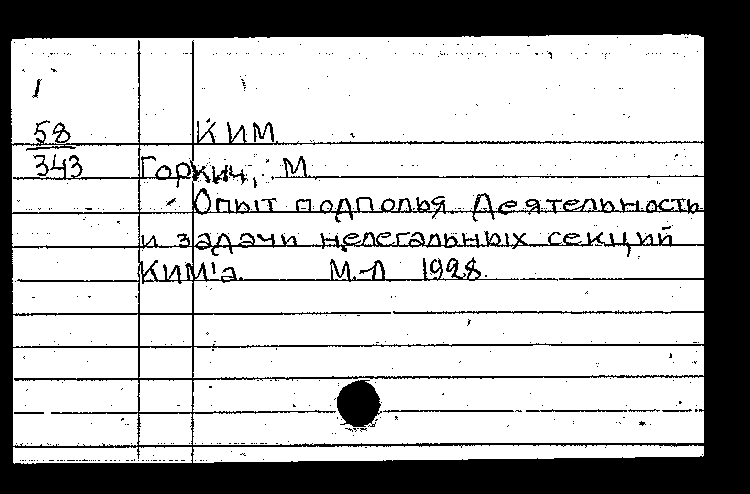 1
58 КИМ
343 Горкич, М
Опыт подполья. Деятельность
и задачи нелегальных секций
КИМ'а. М.-Л 1928.